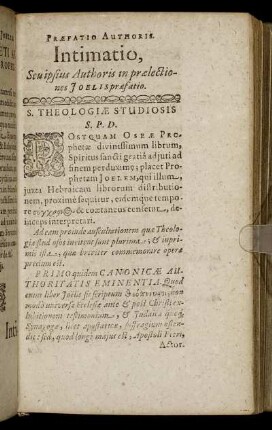 PRÆFATIO AUTHORIS.
Intimatio,
Seu ipsius Authoris in prælectio-
nes JOELIS præfatio.
S. THEOLOGIÆ STUDIOSIS
S. P. D.
POSTQUAM OSEÆ PRO-
phetæ divinissimum librum,
Spiritus sancti gratiâ adjuti ad
finem perduximus; placet Pro-
phetam JOELEM, qui illum,
juxta Hebraicam librorum distributio-
nem, proximè sequitur, eodemque tempo-
re & coætaneus censetur, de-
inceps interpretari.
Ad eam proinde auscultationem quæ Theolo-
giæ stud. invitent sunt plurima, & inpri-
mis ista, quæ breviter commemorare operæ
precium est.
PRIMO quidem CANONICÆ AU-
THORITATIS EMINENTIA. Quod
enim liber Joelis sit non
modò universa Ecclesiæ ante & post Christi ex-
hibitionem testimonium, & Judaica quoq;
Synagoga, licet apostatica, suffragium osten-
dit: sed, quod longè majus est, Apostoli Petri,
Actor.